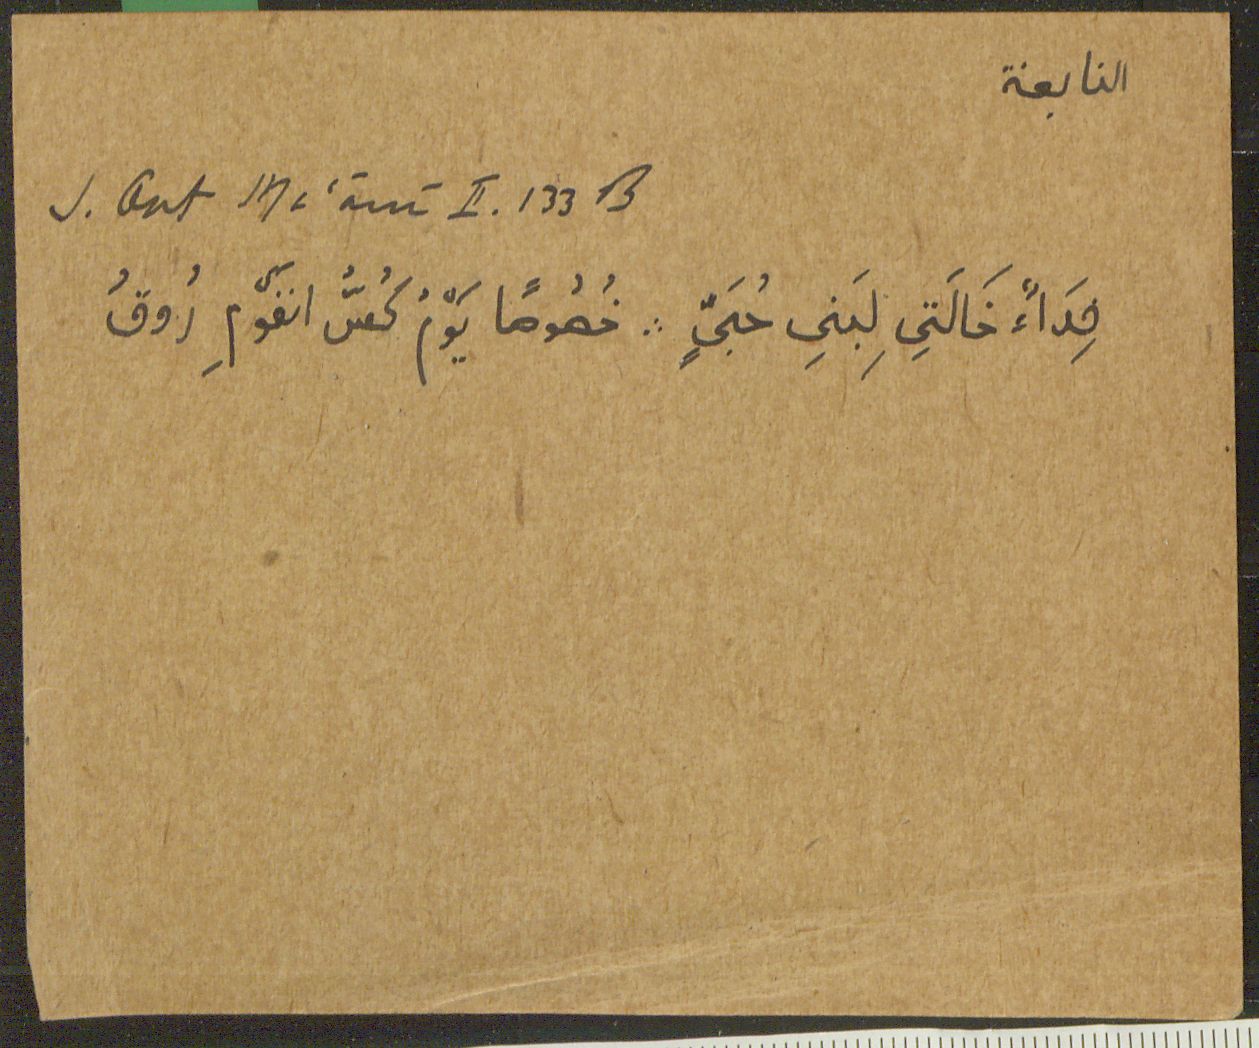 النابغة
J. Qut Maʿānī II. 133 B
فِدَاءٌ خَالَتِي لِبَنِي حُيَيٍّ ∴ خُصُوصًا يَوْمُ كُسُّ القَوْمِ رُوقُ